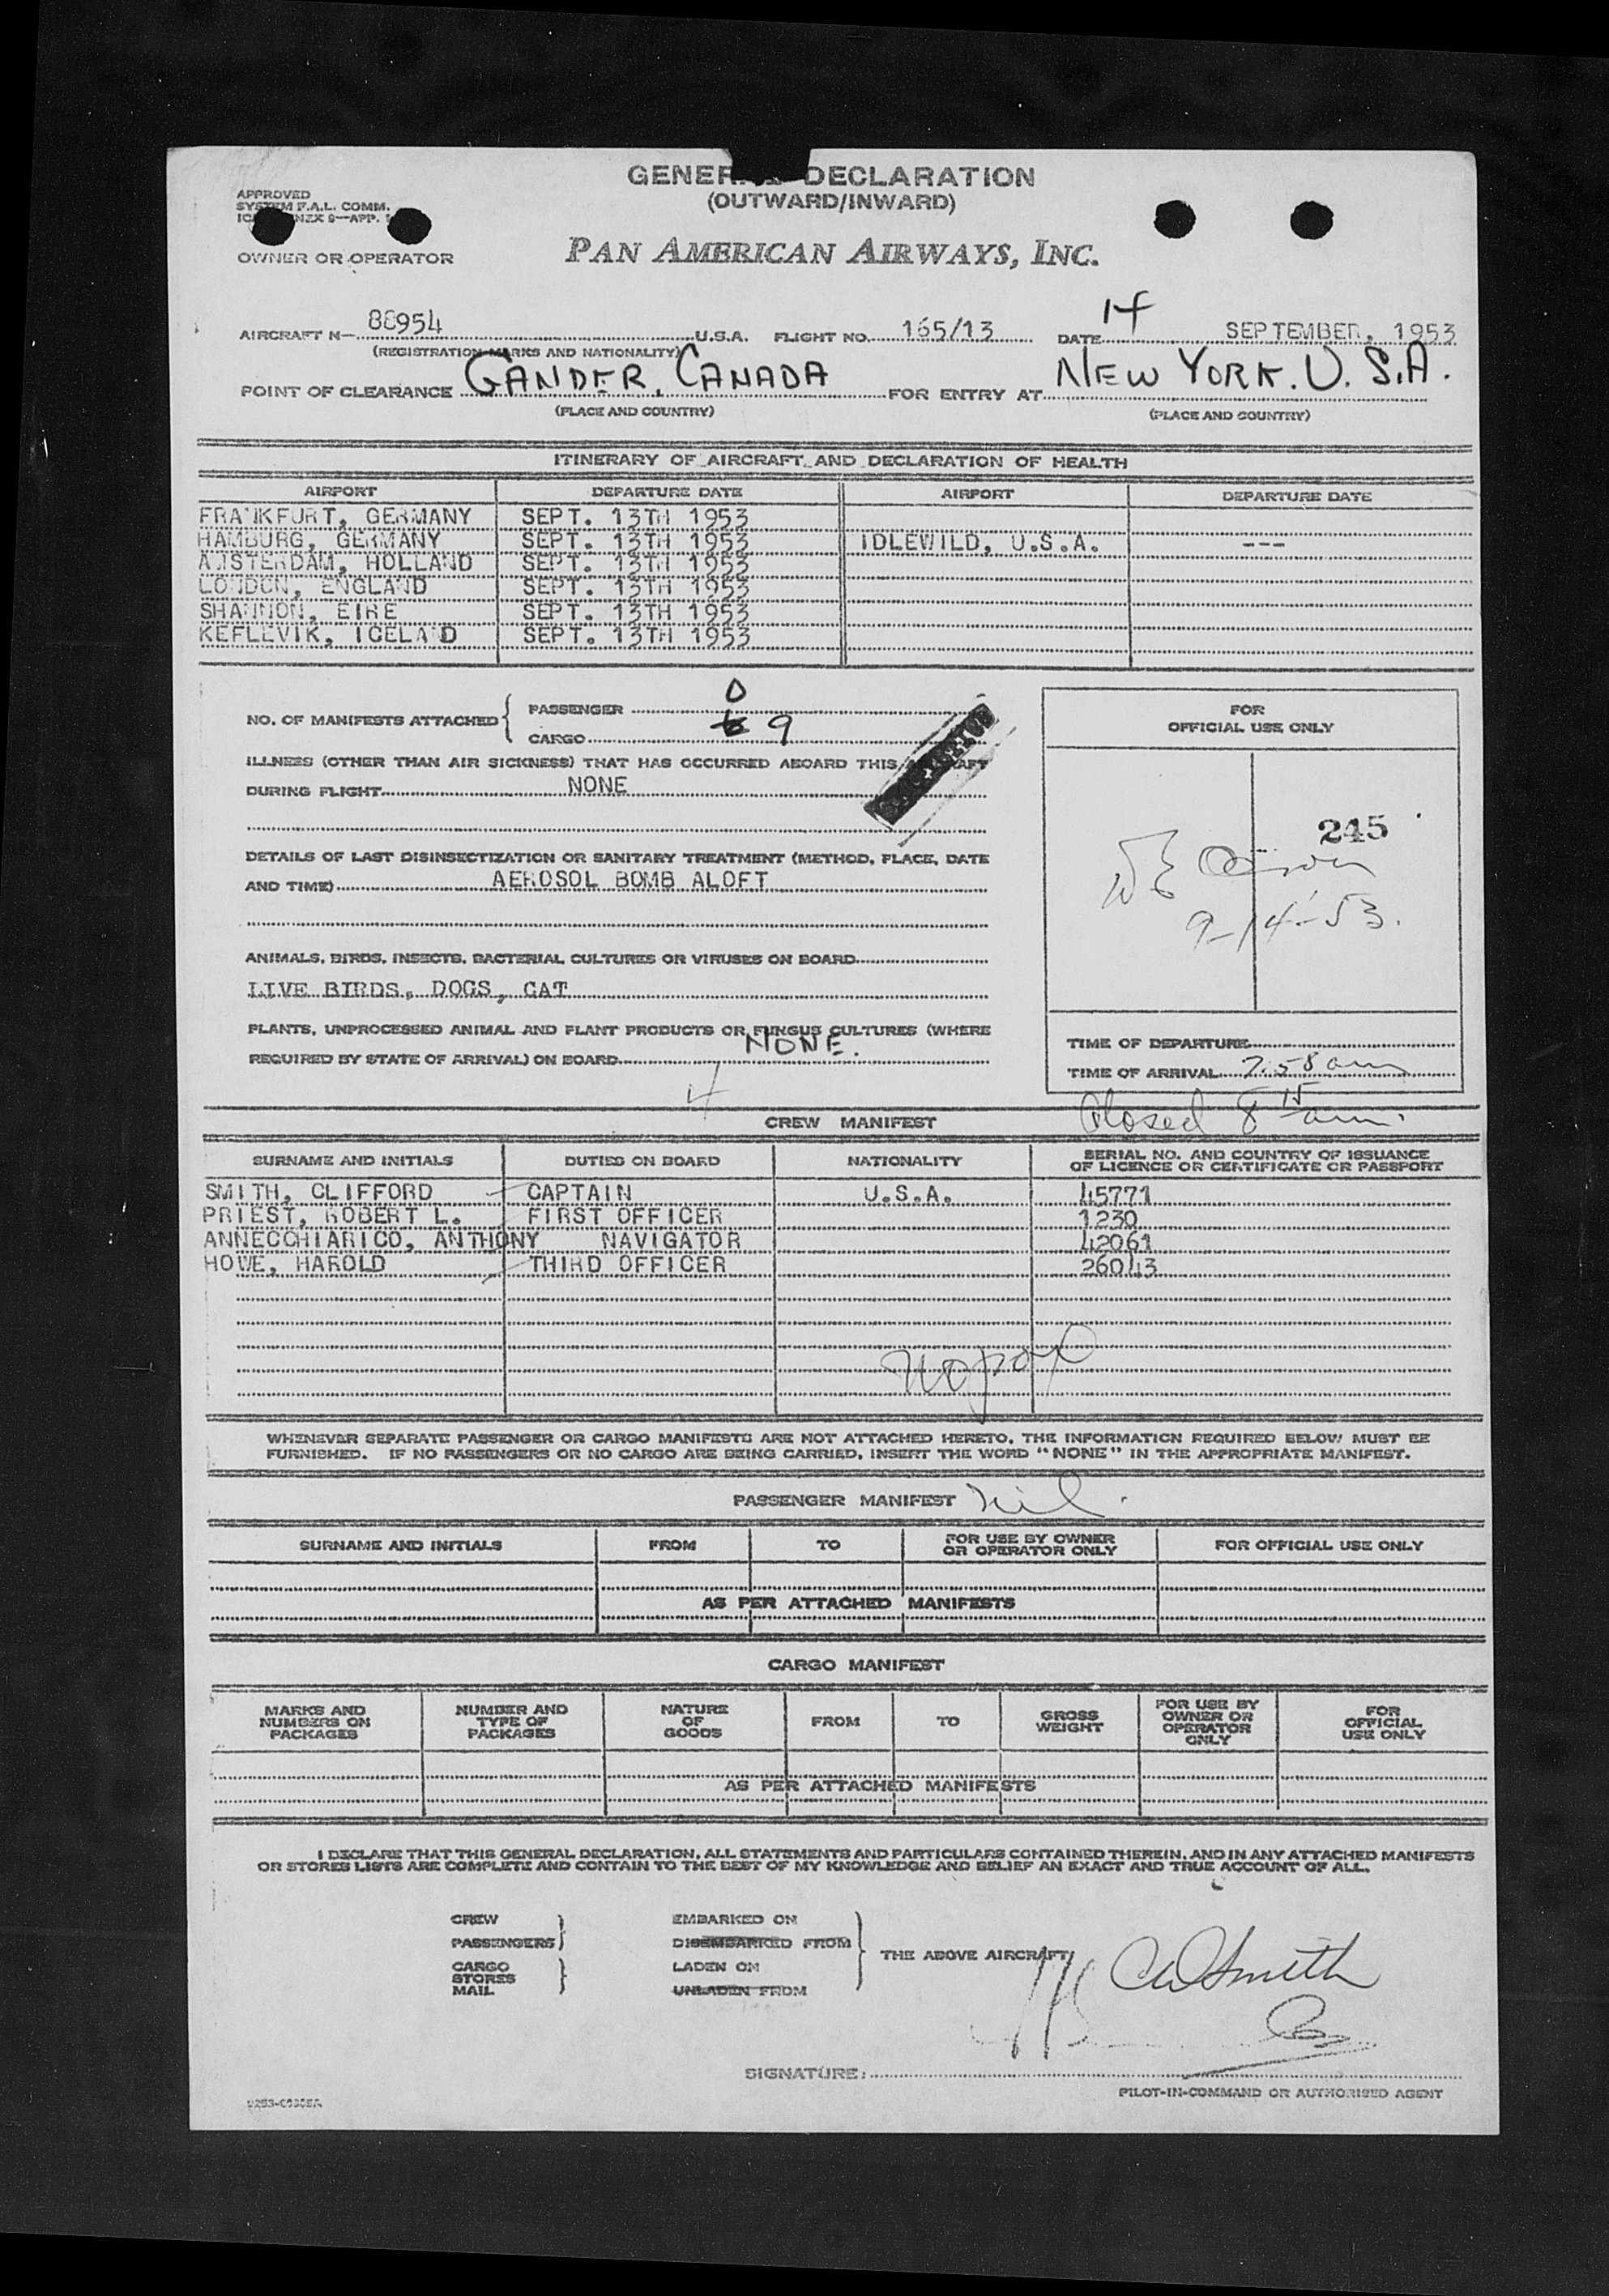 GENERAL DECLARATION
(OUTWARD/INWARD)
APPROVED
SYSTEM F.A.L. COMM.
OWNER OR OPERATOR
PAN AMERICAN AIRWAYS, INC.
AIRCRAFT N— 88954 U.S.A. FLIGHT NO. 165/13 DATE 14 SEPTEMBER, 1953
(REGISTRATION MARKS AND NATIONALITY)
POINT OF CLEARANCE GANDER, CANADA FOR ENTRY AT NEW YORK. U. S.A.
(PLACE AND COUNTRY) (PLACE AND COUNTRY)
ITINERARY OF AIRCRAFT AND DECLARATION OF HEALTH
AIRPORT DEPARTURE DATE AIRPORT DEPARTURE DATE
FRANKFURT, GERMANY SEPT. 13TH 1953
HAMBURG, GERMANY SEPT. 13TH 1953 IDLEWILD, U.S.A. ---
AMSTERDAM, HOLLAND SEPT. 13TH 1953
LONDON, ENGLAND SEPT. 13TH 1953
SHANNON, EIRE SEPT. 13TH 1953
KEFLEVIK, ICELAND SEPT. 13TH 1953
NO. OF MANIFESTS ATTACHED { PASSENGER 0
CARGO 9
ILLNESS (OTHER THAN AIR SICKNESS) THAT HAS OCCURRED ABOARD THIS AIRCRAFT
DURING FLIGHT NONE
DETAILS OF LAST DISINSECTIZATION OR SANITARY TREATMENT (METHOD, PLACE, DATE
AND TIME) AEROSOL BOMB ALOFT
ANIMALS, BIRDS, INSECTS, BACTERIAL CULTURES OR VIRUSES ON BOARD
LIVE BIRDS, DOGS, CAT
PLANTS, UNPROCESSED ANIMAL AND PLANT PRODUCTS OR FUNGUS CULTURES (WHERE
REQUIRED BY STATE OF ARRIVAL) ON BOARD NONE.
4
FOR
OFFICIAL USE ONLY
245
9-14-53.
TIME OF DEPARTURE
TIME OF ARRIVAL 7.58 am
Closed 8 15 am.
CREW MANIFEST
SURNAME AND INITIALS DUTIES ON BOARD NATIONALITY SERIAL NO. AND COUNTRY OF ISSUANCE
OF LICENCE OR CERTIFICATE OR PASSPORT
SMITH, CLIFFORD CAPTAIN U.S.A. 45771
PRIEST, ROBERT L. FIRST OFFICER 1230
ANNECCHIARICO, ANTHONY NAVIGATOR 42061
HOWE, HAROLD THIRD OFFICER 26043
WHENEVER SEPARATE PASSENGER OR CARGO MANIFESTS ARE NOT ATTACHED HERETO, THE INFORMATION REQUIRED BELOW MUST BE
FURNISHED. IF NO PASSENGERS OR NO CARGO ARE BEING CARRIED, INSERT THE WORD "NONE" IN THE APPROPRIATE MANIFEST.
PASSENGER MANIFEST nil.
SURNAME AND INITIALS FROM TO FOR USE BY OWNER
OR OPERATOR ONLY FOR OFFICIAL USE ONLY
AS PER ATTACHED MANIFESTS
CARGO MANIFEST
MARKS AND
NUMBERS ON
PACKAGES
NUMBER AND
TYPE OF
PACKAGES
NATURE
OF
GOODS
FROM TO
GROSS
WEIGHT
FOR USE BY
OWNER OR
OPERATOR
ONLY
FOR
OFFICIAL
USE ONLY
AS PER ATTACHED MANIFESTS
I DECLARE THAT THIS GENERAL DECLARATION, ALL STATEMENTS AND PARTICULARS CONTAINED THEREIN, AND IN ANY ATTACHED MANIFESTS
OR STORES LISTS ARE COMPLETE AND CONTAIN TO THE BEST OF MY KNOWLEDGE AND BELIEF AN EXACT AND TRUE ACCOUNT OF ALL.
CREW } EMBARKED ON
PASSENGERS DISEMBARKED FROM
CARGO } LADEN ON
STORES
MAIL UNLADEN FROM
THE ABOVE AIRCRAFT
CW Smith
SIGNATURE:
PILOT-IN-COMMAND OR AUTHORISED AGENT